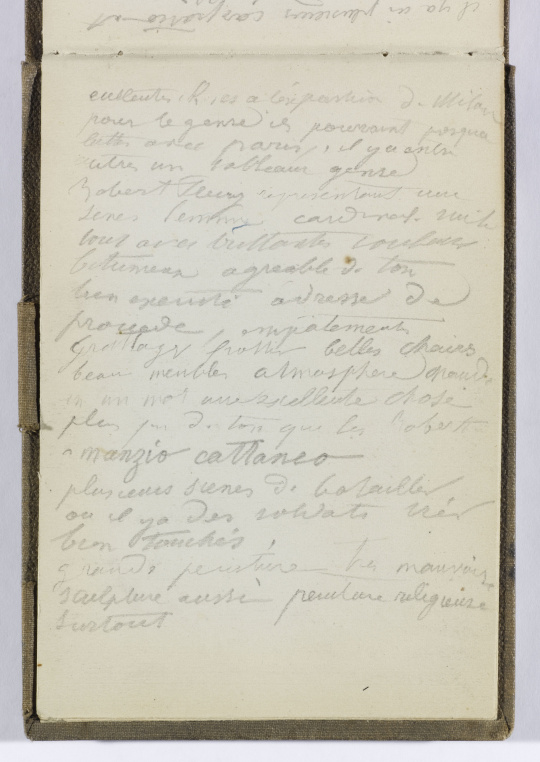 il y a plusieurs
excellentes choses à l'exposition de Milan
pour le genre ils pourraient presque
lutter avec paris, il y a entre
autres un tableau genre
Robert Fleury representant une
scene cardinal
tout avec
bitumeux agreable de ton
bien executé adresse de
procede, empatements
grattages frottis belles chairs
beau meubles atmosphere chaude
en un mot une excellente chose
plus de ton que les Robert
manzio cattaneo
plusieurs scenes de batailles
ou il y a des soldats très
bien touchés,
grande peinture tres mauvaise
sculpture aussi peinture religieuse
surtout